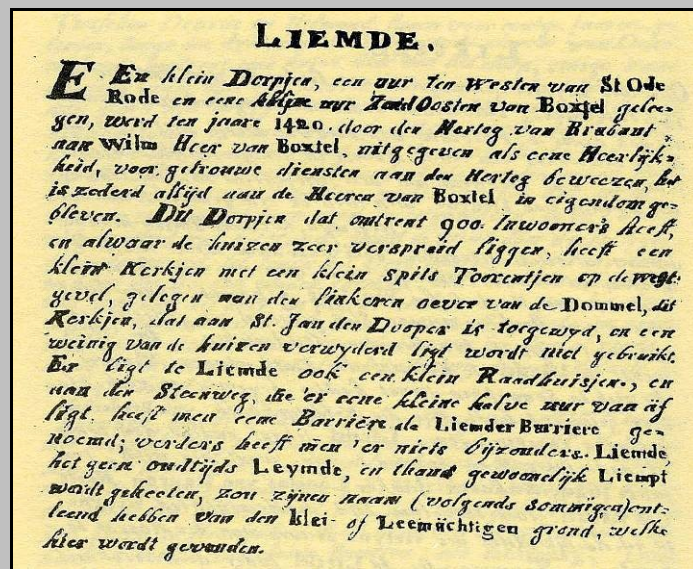 LIEMDE.
EEn klein Dorpjen, een uur ten Westen van St Ode
Rode en eene kleijne uur Zuid Oosten van Boxtel gelee-
gen, werd ten jaare 1420. door den Hertog van Brabant
aan Wilm Heer van Boxtel, uitgegeven als eene Heerlijk-
heid, voor getrouwe diensten aan den Hertog beweezen, het
is zederd altijd aan de Heeren van Boxtel in eigendom ge-
bleven. Dit Dorpjen dat omtrent 900. Inwooners heeft,
en alwaar de huizen zeer verspreid liggen, heeft een
klein Kerkjen met een klein spits Toorentjen op de west
gevel, gelegen aan den linkeren oever van de Dommel, dit
Kerkjen, dat aan St. Jan den Dooper is toegewyd, en een
weinig van de huizen verwyderd ligt wordt niet gebruikt.
Er ligt te Liemde ook een klein Raadhuisjen, en
aan den Steenweg, die 'er eene kleine halve uur van äf
ligt heeft men eene Barrière de Liemder Barriere ge-
noemd; verders heeft men 'er niets bijzonders. Liemde,
het geen oudtijds Leymde, en thans gewoonelijk Liempt
wordt geheeten, zou zijnen naam (volgends sommigen) ont-
leend hebben van den klei- of Leemächtigen grond, welke
hier wordt gevonden.